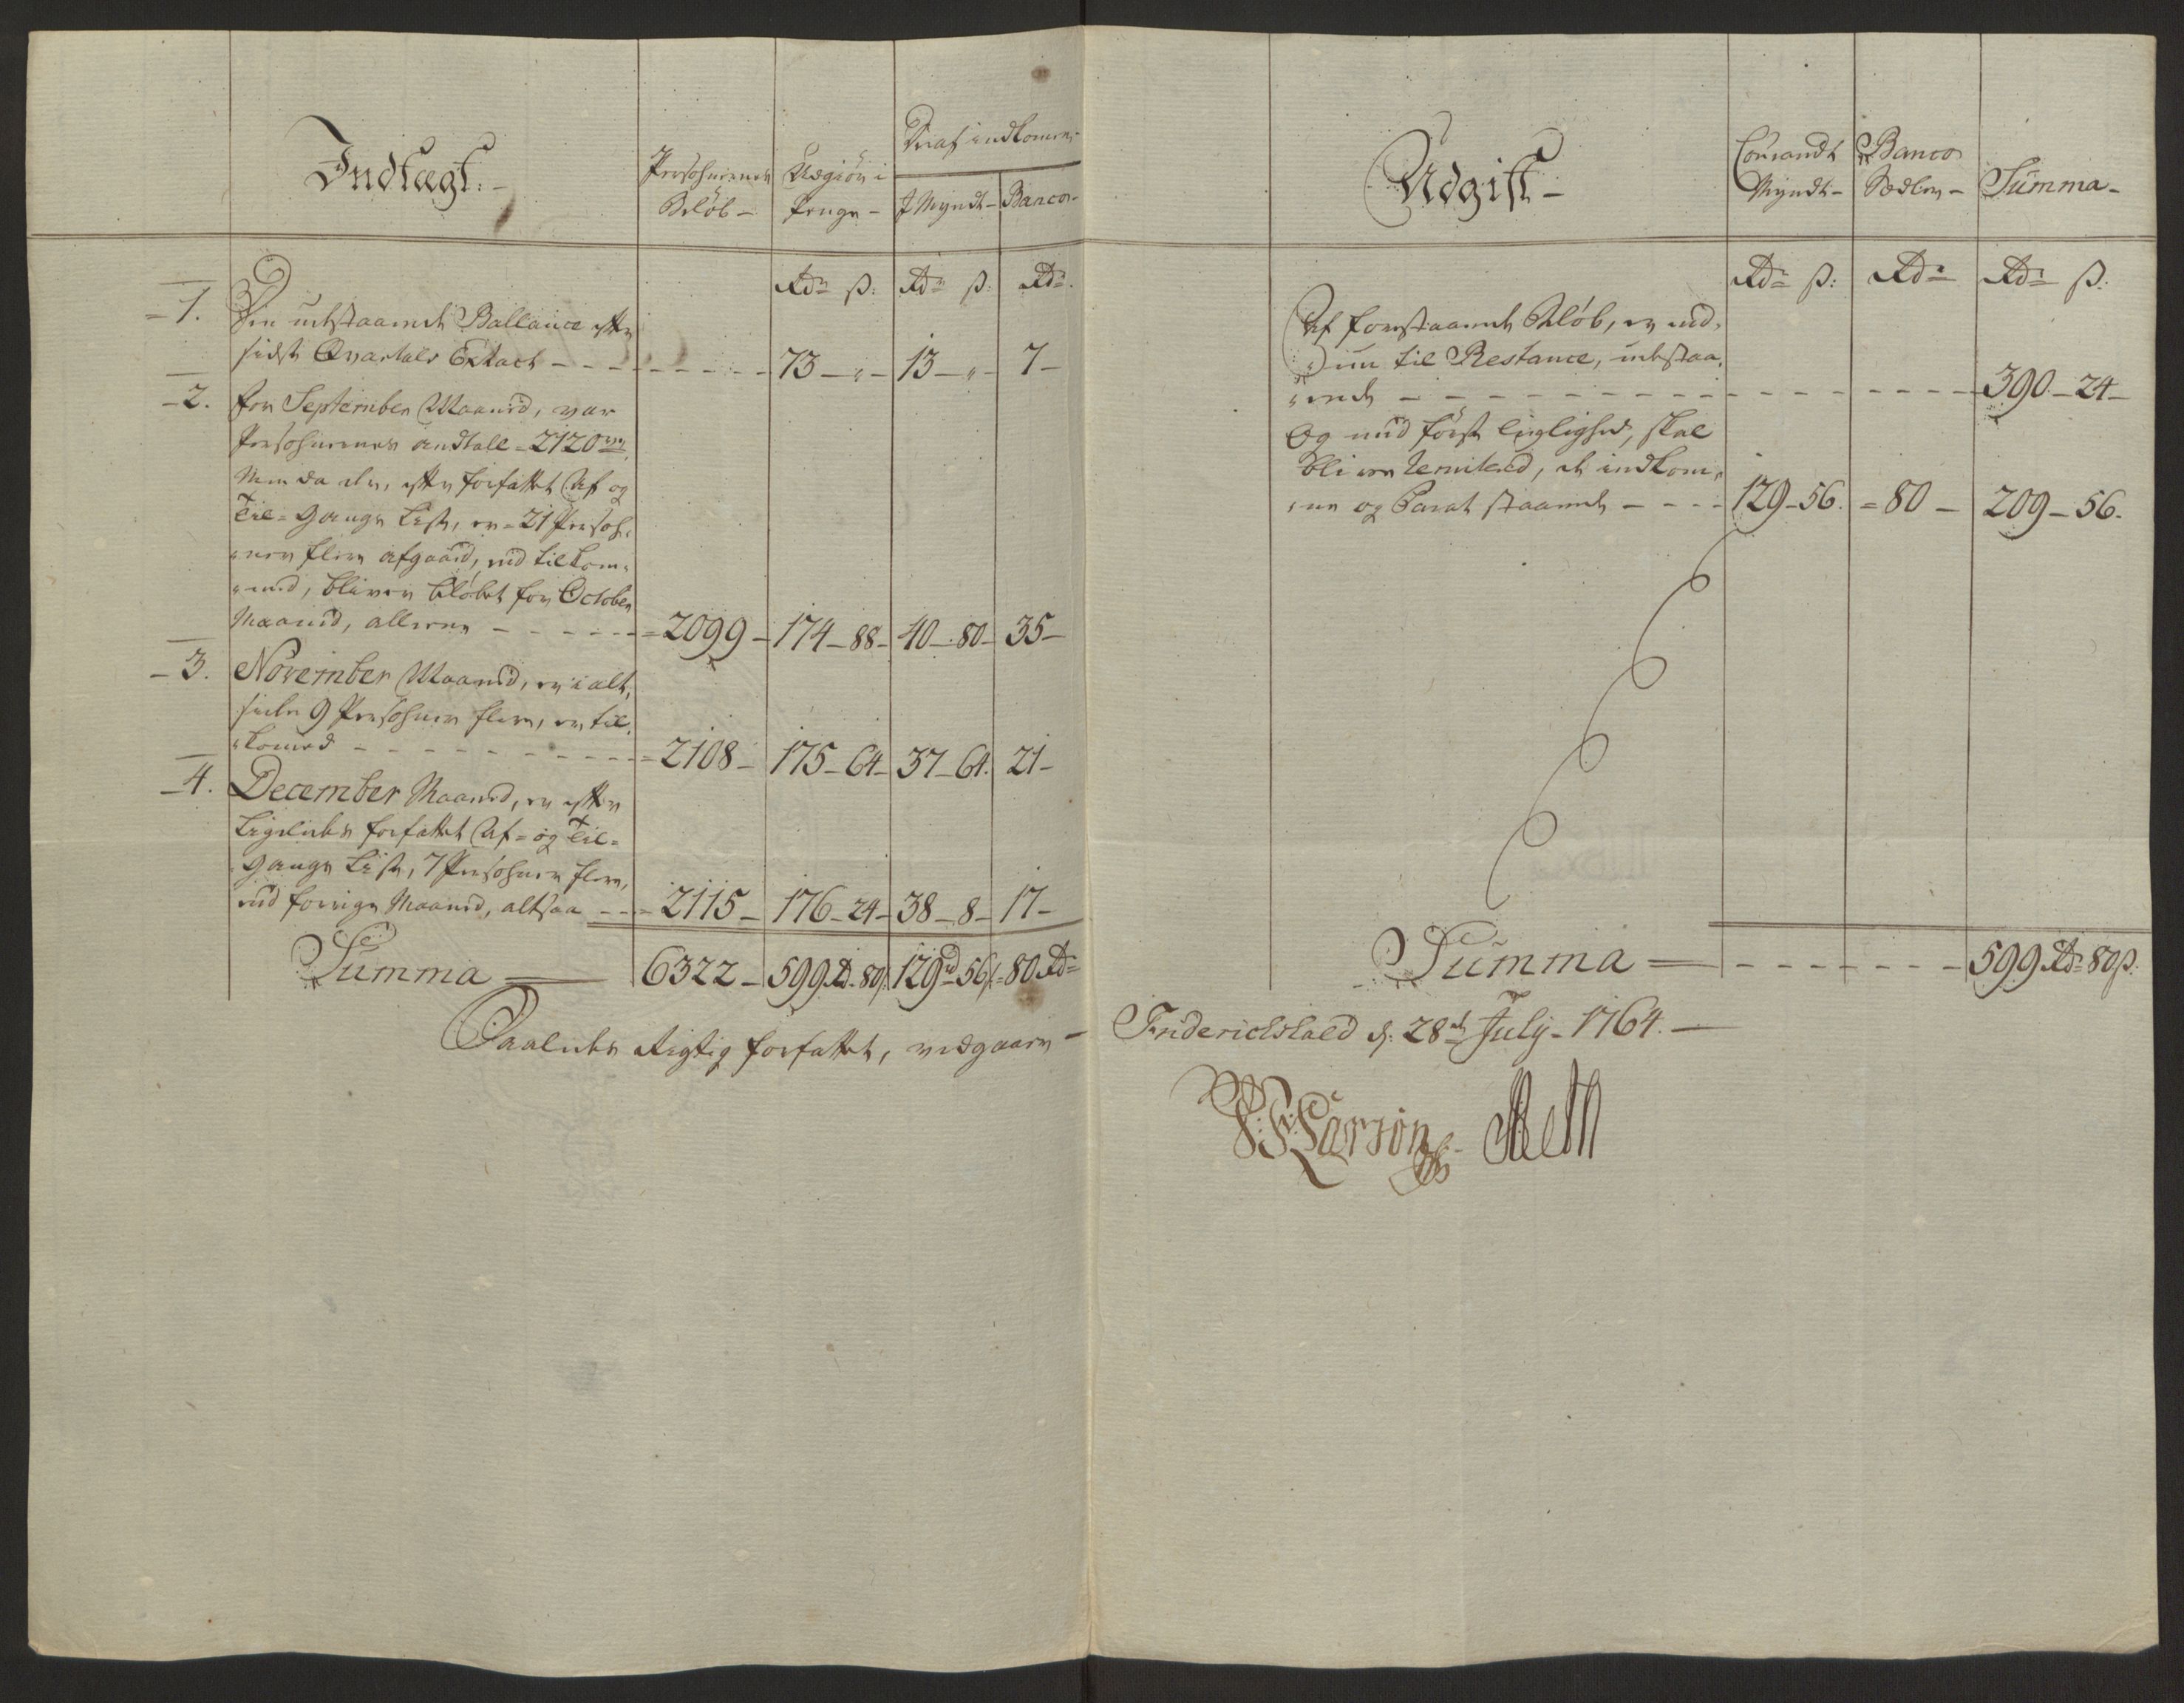 Indtægt.
Persohnernes Beløb –
Udgiør i Penge –
Deraf indkomen
J Myndt – Banco –
Rdr ß. Rdr ß. Rdr
1. Den udestaaende Ballance efter
sidste Qvartals Extract – – – 73 – „ – 13 – „ – 7 –
2. for September Maaned, var
Persohnernes andtall = 2120
Men da der, efter forfattet Af og
Til-Gangs Liste, er = 21 Persoh-
ner flere afgaaed, end tilkom-
med, bliver beløbet for October
Maaned, allene – – – 2099 – 174 – 88 – 40 – 80 – 35 –
3. November Maaned, er i alt,
siden 9 Persohner flere, er til-
komed – – – 2108 – 175 – 64 – 37 – 64. 21 –
4. December Maaned, er efter
Ligeledes forfattet Af- og Til-
Gangs Liste, 7 Persohner flere,
end forrige Maaned, altsaa – – – 2115 – 176 – 24 – 38 – 8 – 17 –
Summa = 6322 – 599 Rd. 80 ß 129 rd 56 ß = 80 Rdr
Saaledes Rigtig forfattet, vedgaaes –
Udgift –
Courandt Myndt –
Banco Sedler –
Summa –
Rdr ß: Rdr Rdr ß.
Af forestaaende Beløb, er end-
nu til Restance, udestaa-
ende – – – 390 – 24 –
Og med første leylighed, skal
bliven remitered, de indkom-
ne og Parat staaende – – – 129 – 56. = 80 – 209 – 56.
Summa = – – – 599 Rdr 80 ß.
Friderichshald d: 28de July – 1764. –